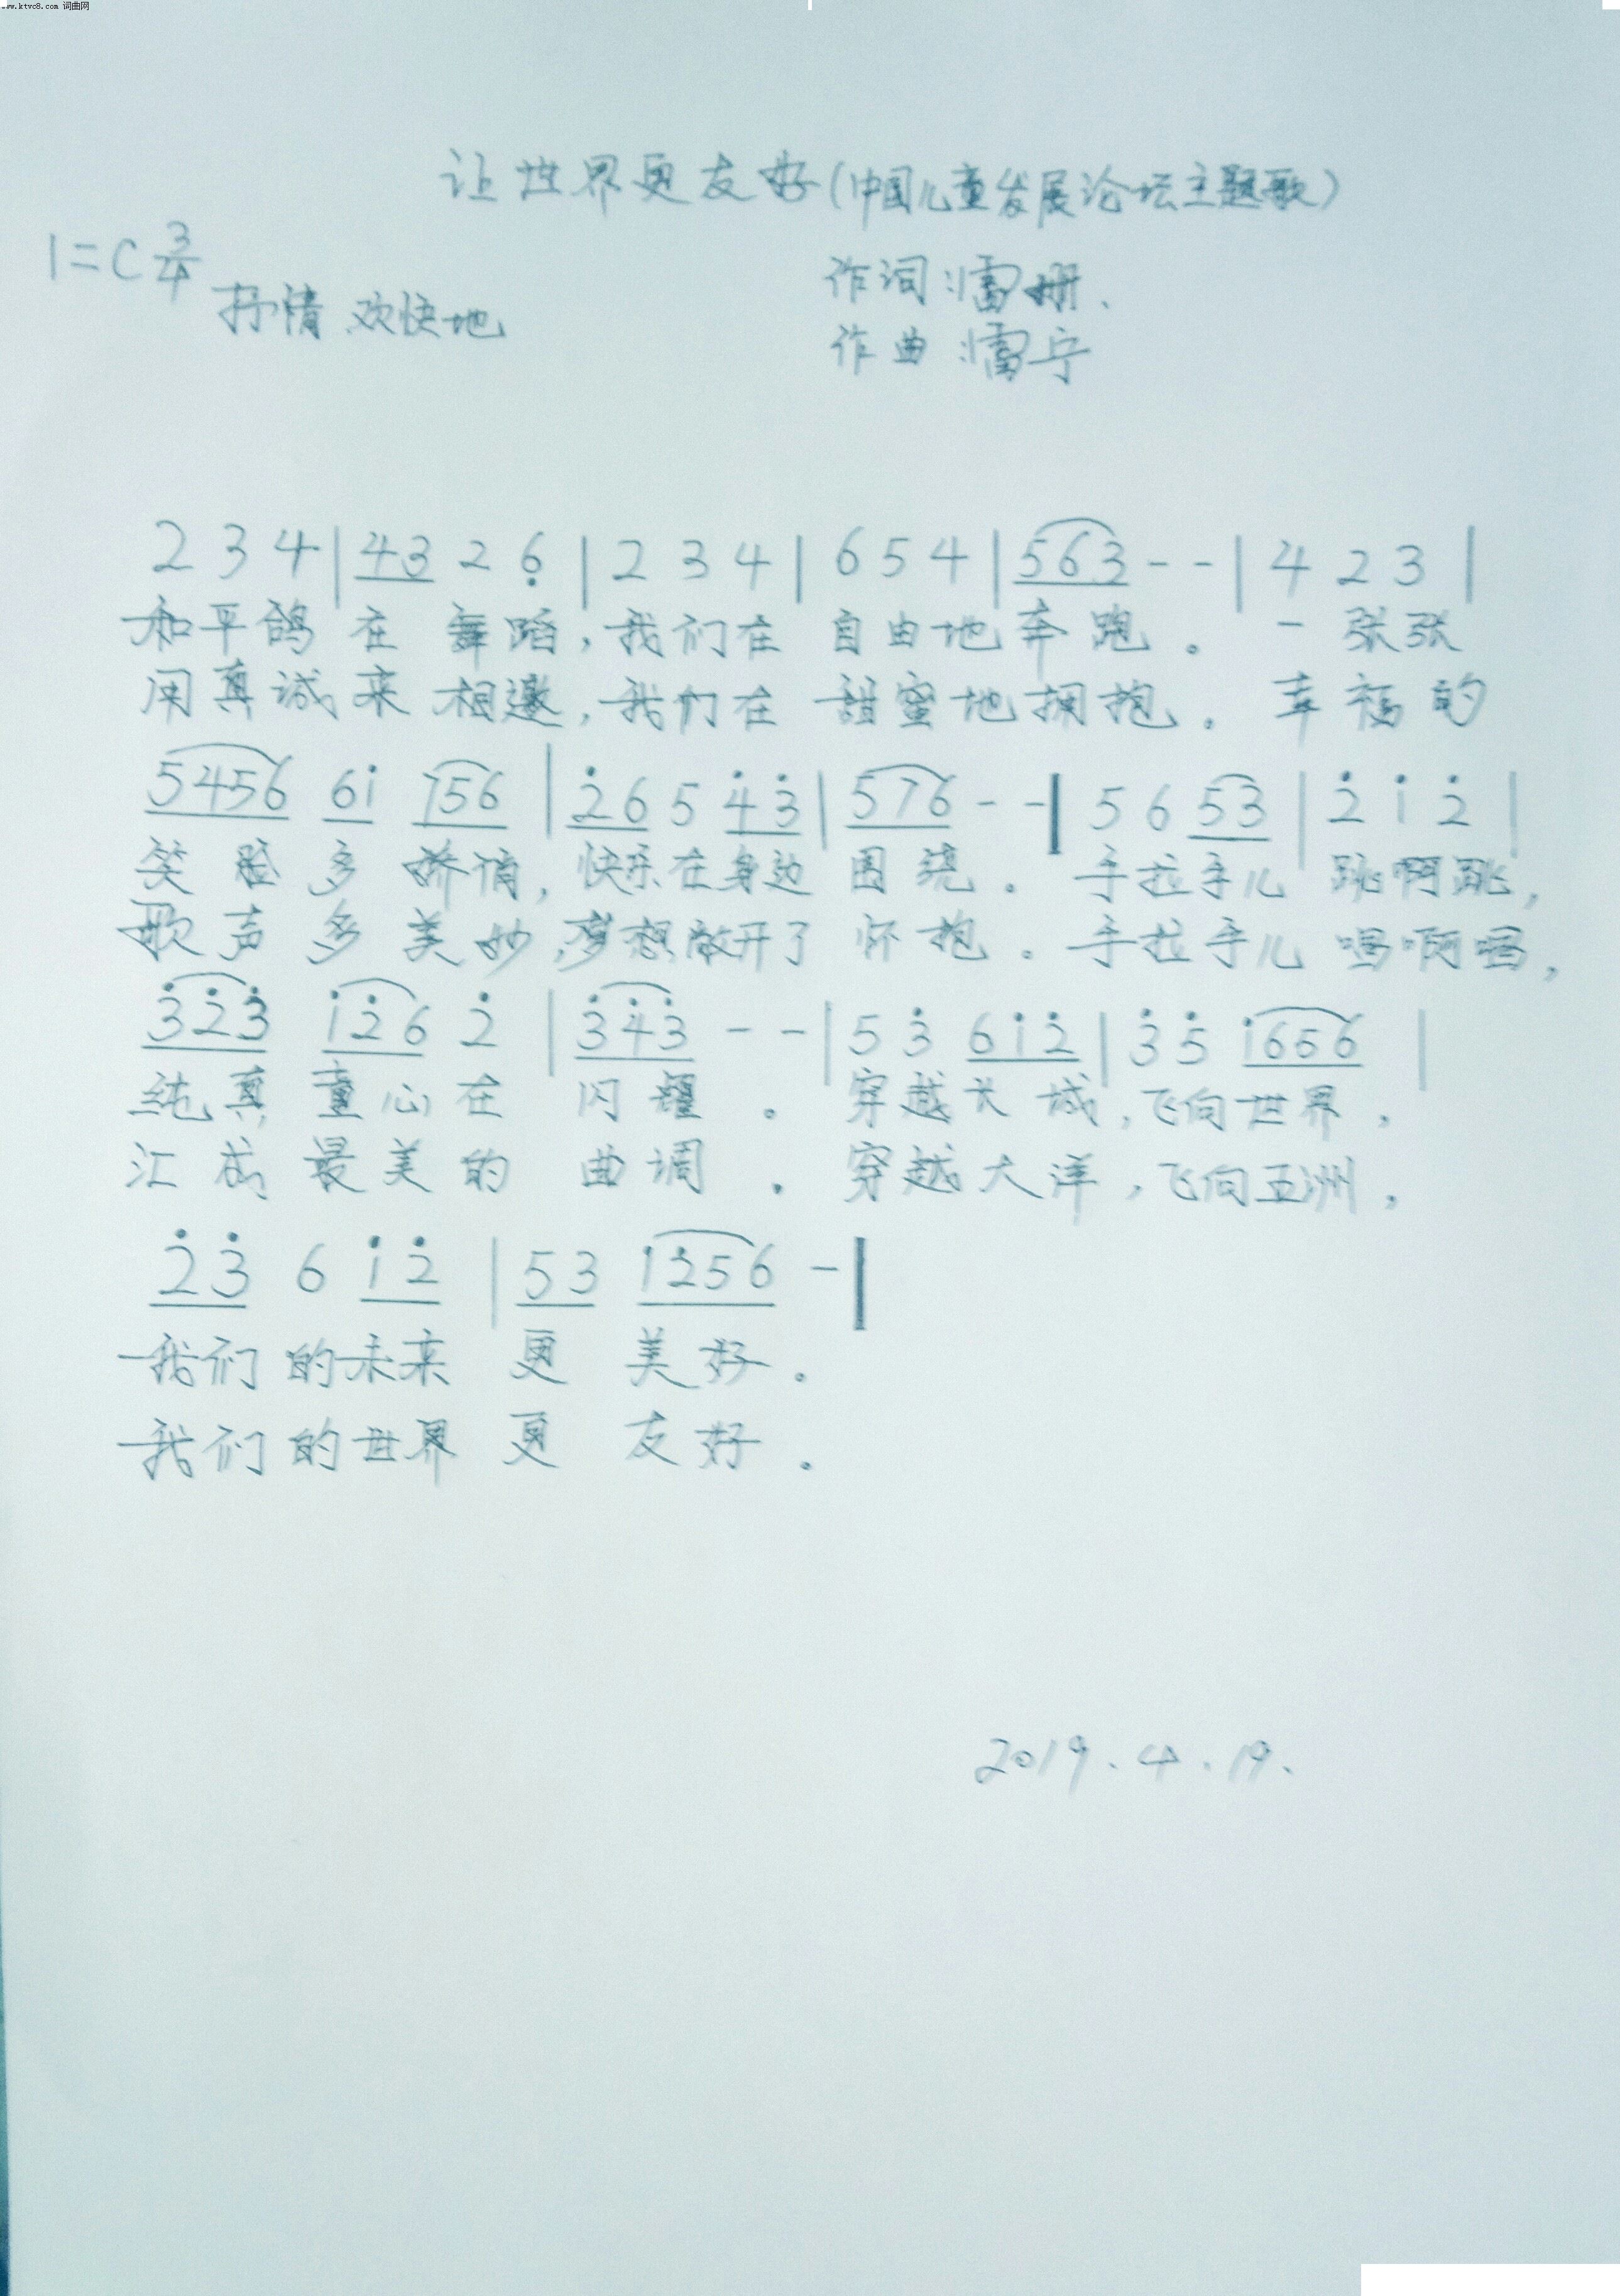 www.ktvc8.com 词曲网
让世界更友好(中国儿童发展论坛主题歌)
1=C 3/4
抒情、欢快地
作词:雷珊、
作曲:雷宁
2 3 4 | 43 2 6̣ | 2 3 4 | 6 5 4 | 563 - - | 4 2 3 |
和平鸽 在 舞蹈,我们在 自由地奔跑。一张张
用真诚来相邀,我们在 甜蜜地拥抱。幸福的
5456 6i̇ 756 | 2̇6 5 4̇3̇ | 576 - - | 5 6 53 | 2̇ i̇ 2̇ |
笑脸多娇俏,快乐在身边围绕。手拉手儿 跳啊跳,
歌声多美妙,梦想敞开了怀抱。手拉手儿 唱啊唱,
3̇2̇3̇ i̇2̇6 2̇ | 3̇4̇3̇ - - | 5 3̇ 6i̇2̇ | 3̇ 5̇ i̇656 |
纯真童心在 闪耀。穿越长城,飞向世界,
汇成最美的 曲调。穿越大洋,飞向五洲,
2̇3̇ 6 i̇2̇ | 53 i̇2̇56 - |
我们的未来 更 美好。
我们的世界 更 友好。
2019.4.19.